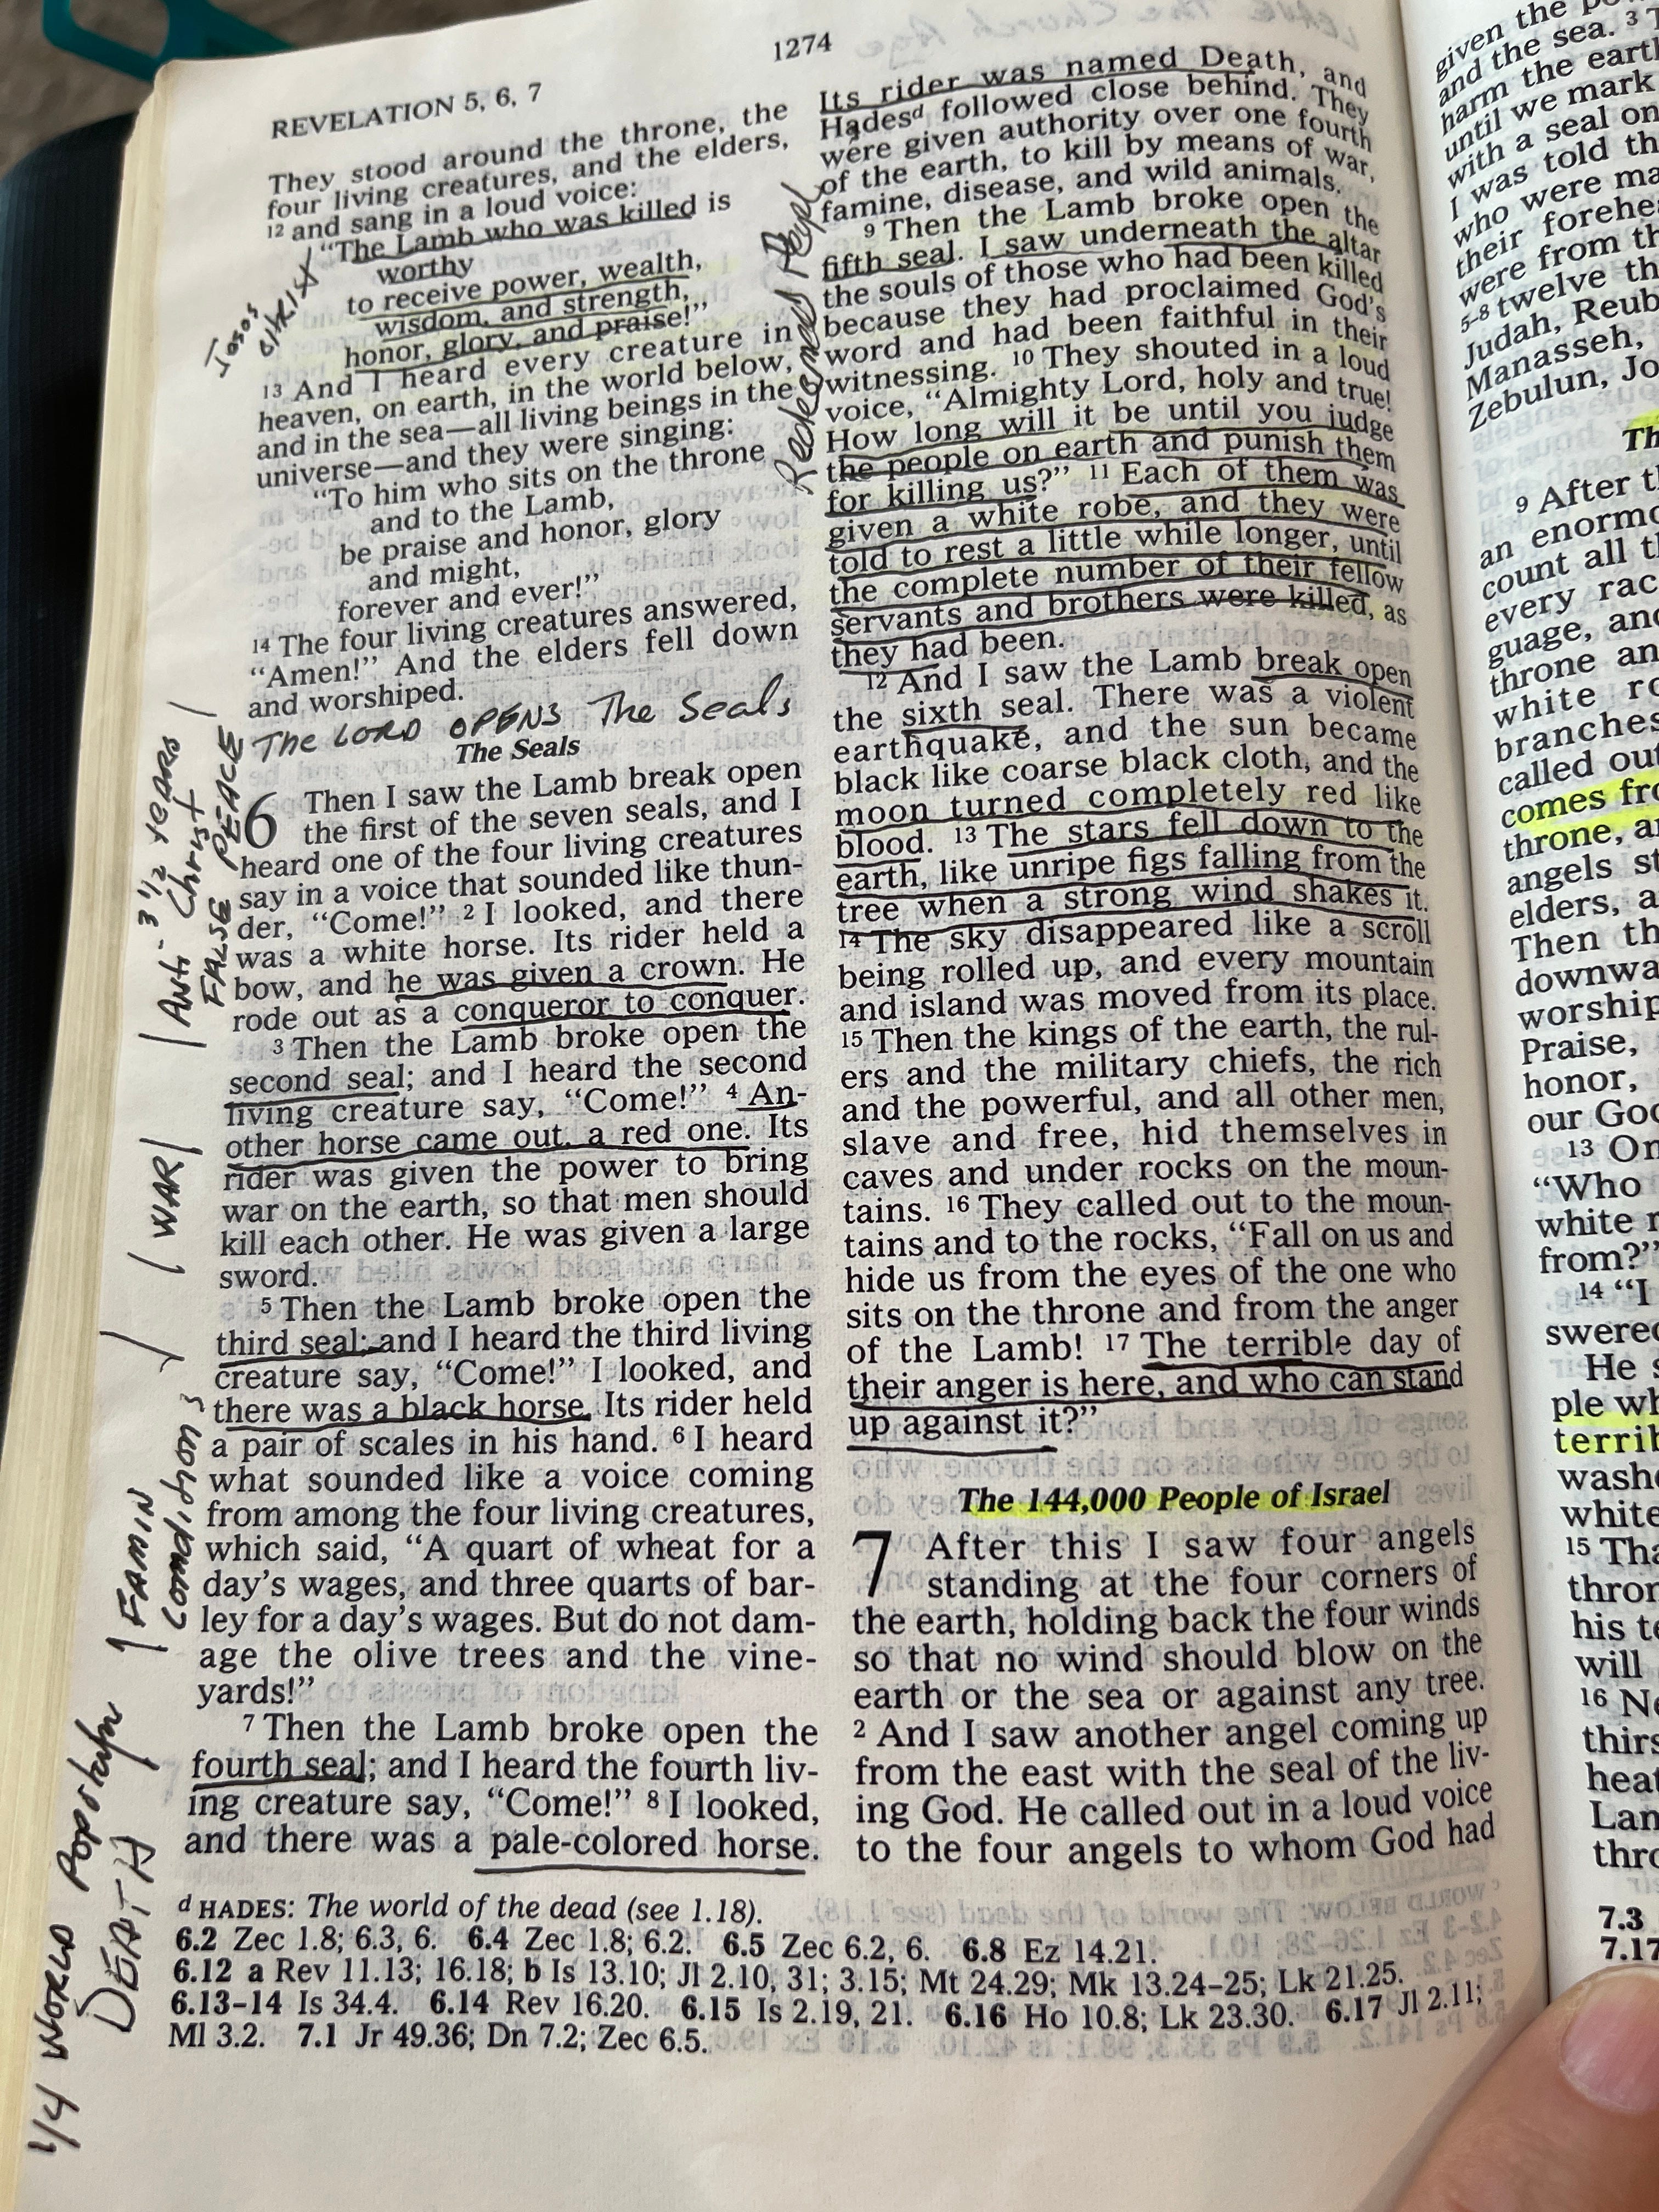 1274
REVELATION 5, 6, 7
They stood around the throne, the
four living creatures, and the elders,
12 and sang in a loud voice:
"The Lamb who was killed is
worthy
to receive power, wealth,
wisdom, and strength,
honor, glory, and praise!"
13 And I heard every creature in
heaven, on earth, in the world below,
and in the sea—all living beings in the
universe—and they were singing:
"To him who sits on the throne
and to the Lamb,
be praise and honor, glory
and might,
forever and ever!"
14 The four living creatures answered,
"Amen!" And the elders fell down
and worshiped.
THE LORD OPENS The Seals
The Seals
6 Then I saw the Lamb break open
the first of the seven seals, and I
heard one of the four living creatures
say in a voice that sounded like thun-
der, "Come!" 2 I looked, and there
was a white horse. Its rider held a
bow, and he was given a crown. He
rode out as a conqueror to conquer.
3 Then the Lamb broke open the
second seal; and I heard the second
living creature say, "Come!" 4 An-
other horse came out, a red one. Its
rider was given the power to bring
war on the earth, so that men should
kill each other. He was given a large
sword.
5 Then the Lamb broke open the
third seal; and I heard the third living
creature say, "Come!" I looked, and
there was a black horse. Its rider held
a pair of scales in his hand. 6 I heard
what sounded like a voice coming
from among the four living creatures,
which said, "A quart of wheat for a
day's wages, and three quarts of bar-
ley for a day's wages. But do not dam-
age the olive trees and the vine-
yards!"
7 Then the Lamb broke open the
fourth seal; and I heard the fourth liv-
ing creature say, "Come!" 8 I looked,
and there was a pale-colored horse.
CHRIST
3 1/2 YEARS
Anti-Christ
FALSE PEACE
WAR
FAMIN
Conditions
1/4 WORLD
DEATH
Its rider was named Death, and
Hadesd followed close behind. They
were given authority over one fourth
of the earth, to kill by means of war,
famine, disease, and wild animals.
9 Then the Lamb broke open the
fifth seal. I saw underneath the altar
the souls of those who had been killed
because they had proclaimed God's
word and had been faithful in their
witnessing. 10 They shouted in a loud
voice, "Almighty Lord, holy and true!
How long will it be until you judge
the people on earth and punish them
for killing us?" 11 Each of them was
given a white robe, and they were
told to rest a little while longer, until
the complete number of their fellow
servants and brothers were killed, as
they had been.
12 And I saw the Lamb break open
the sixth seal. There was a violent
earthquake, and the sun became
black like coarse black cloth, and the
moon turned completely red like
blood. 13 The stars fell down to the
earth, like unripe figs falling from the
tree when a strong wind shakes it.
14 The sky disappeared like a scroll
being rolled up, and every mountain
and island was moved from its place.
15 Then the kings of the earth, the rul-
ers and the military chiefs, the rich
and the powerful, and all other men,
slave and free, hid themselves in
caves and under rocks on the moun-
tains. 16 They called out to the moun-
tains and to the rocks, "Fall on us and
hide us from the eyes of the one who
sits on the throne and from the anger
of the Lamb! 17 The terrible day of
their anger is here, and who can stand
up against it?"
The 144,000 People of Israel
7 After this I saw four angels
standing at the four corners of
the earth, holding back the four winds
so that no wind should blow on the
earth or the sea or against any tree.
2 And I saw another angel coming up
from the east with the seal of the liv-
ing God. He called out in a loud voice
to the four angels to whom God had
d HADES: The world of the dead (see 1.18).
6.2 Zec 1.8; 6.3, 6. 6.4 Zec 1.8; 6.2. 6.5 Zec 6.2, 6. 6.8 Ez 14.21.
6.12 a Rev 11.13; 16.18; b Is 13.10; Jl 2.10, 31; 3.15; Mt 24.29; Mk 13.24–25; Lk 21.25.
6.13–14 Is 34.4. 6.14 Rev 16.20. 6.15 Is 2.19, 21. 6.16 Ho 10.8; Lk 23.30. 6.17 Jl 2.11;
Ml 3.2. 7.1 Jr 49.36; Dn 7.2; Zec 6.5.
given the
and the sea. 3
harm the earth
until we mark
with a seal on
I was told
who were
their
were from
5-8 twelve
Judah,
Manasseh,
Zebulun,
9 After
an
count all
every
guage,
throne
white
branches
called out
comes
throne,
angels
elders, a
Then
worship
Praise,
honor,
our
13
"Who
white
from?"
14 "I
swered
He
white
15
his
will
16
7.3